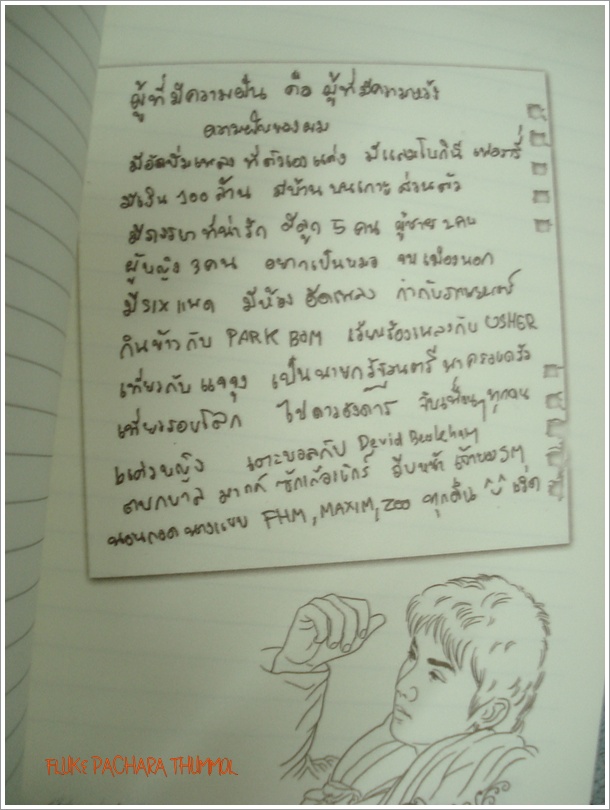 ผู้ที่มีความฝัน คือ ผู้ที่มีความหวัง
ความฝันของผม
มีอัลบั่มเพลง ที่ตัวเองแต่ง มีแลมโบกินี เฟอรารี่
มีเงิน 100 ล้าน มีบ้านบนเกาะส่วนตัว
มีภรรยาที่น่ารัก มีลูก 5 คน ผู้ชาย 2 คน
ผู้หญิง 3 คน อยากเป็นหมอ จบเมืองนอก
มี SIX แพค มีห้องอัดเพลง กำกับภาพยนตร์
กินข้าวกับ PARK BOM เรียนร้องเพลงกับ USHER
เที่ยวกับแจจุง เป็นนายกรัฐมนตรี พาครอบครัว
เที่ยวรอบโลก ไปดาวอังคาร จับเพื่อนๆทุกคน
แต่งหญิง เตะบอลกับ David Beckham
ตบกบาล มาร์ค ซักเคอเบิกร์ ยืนหน้า เจ้าของ SM
นอนกอด นางแบบ FHM, MAXIM, ZOO ทุกคืน ^^
FLUKE PACHARA THUMMOL